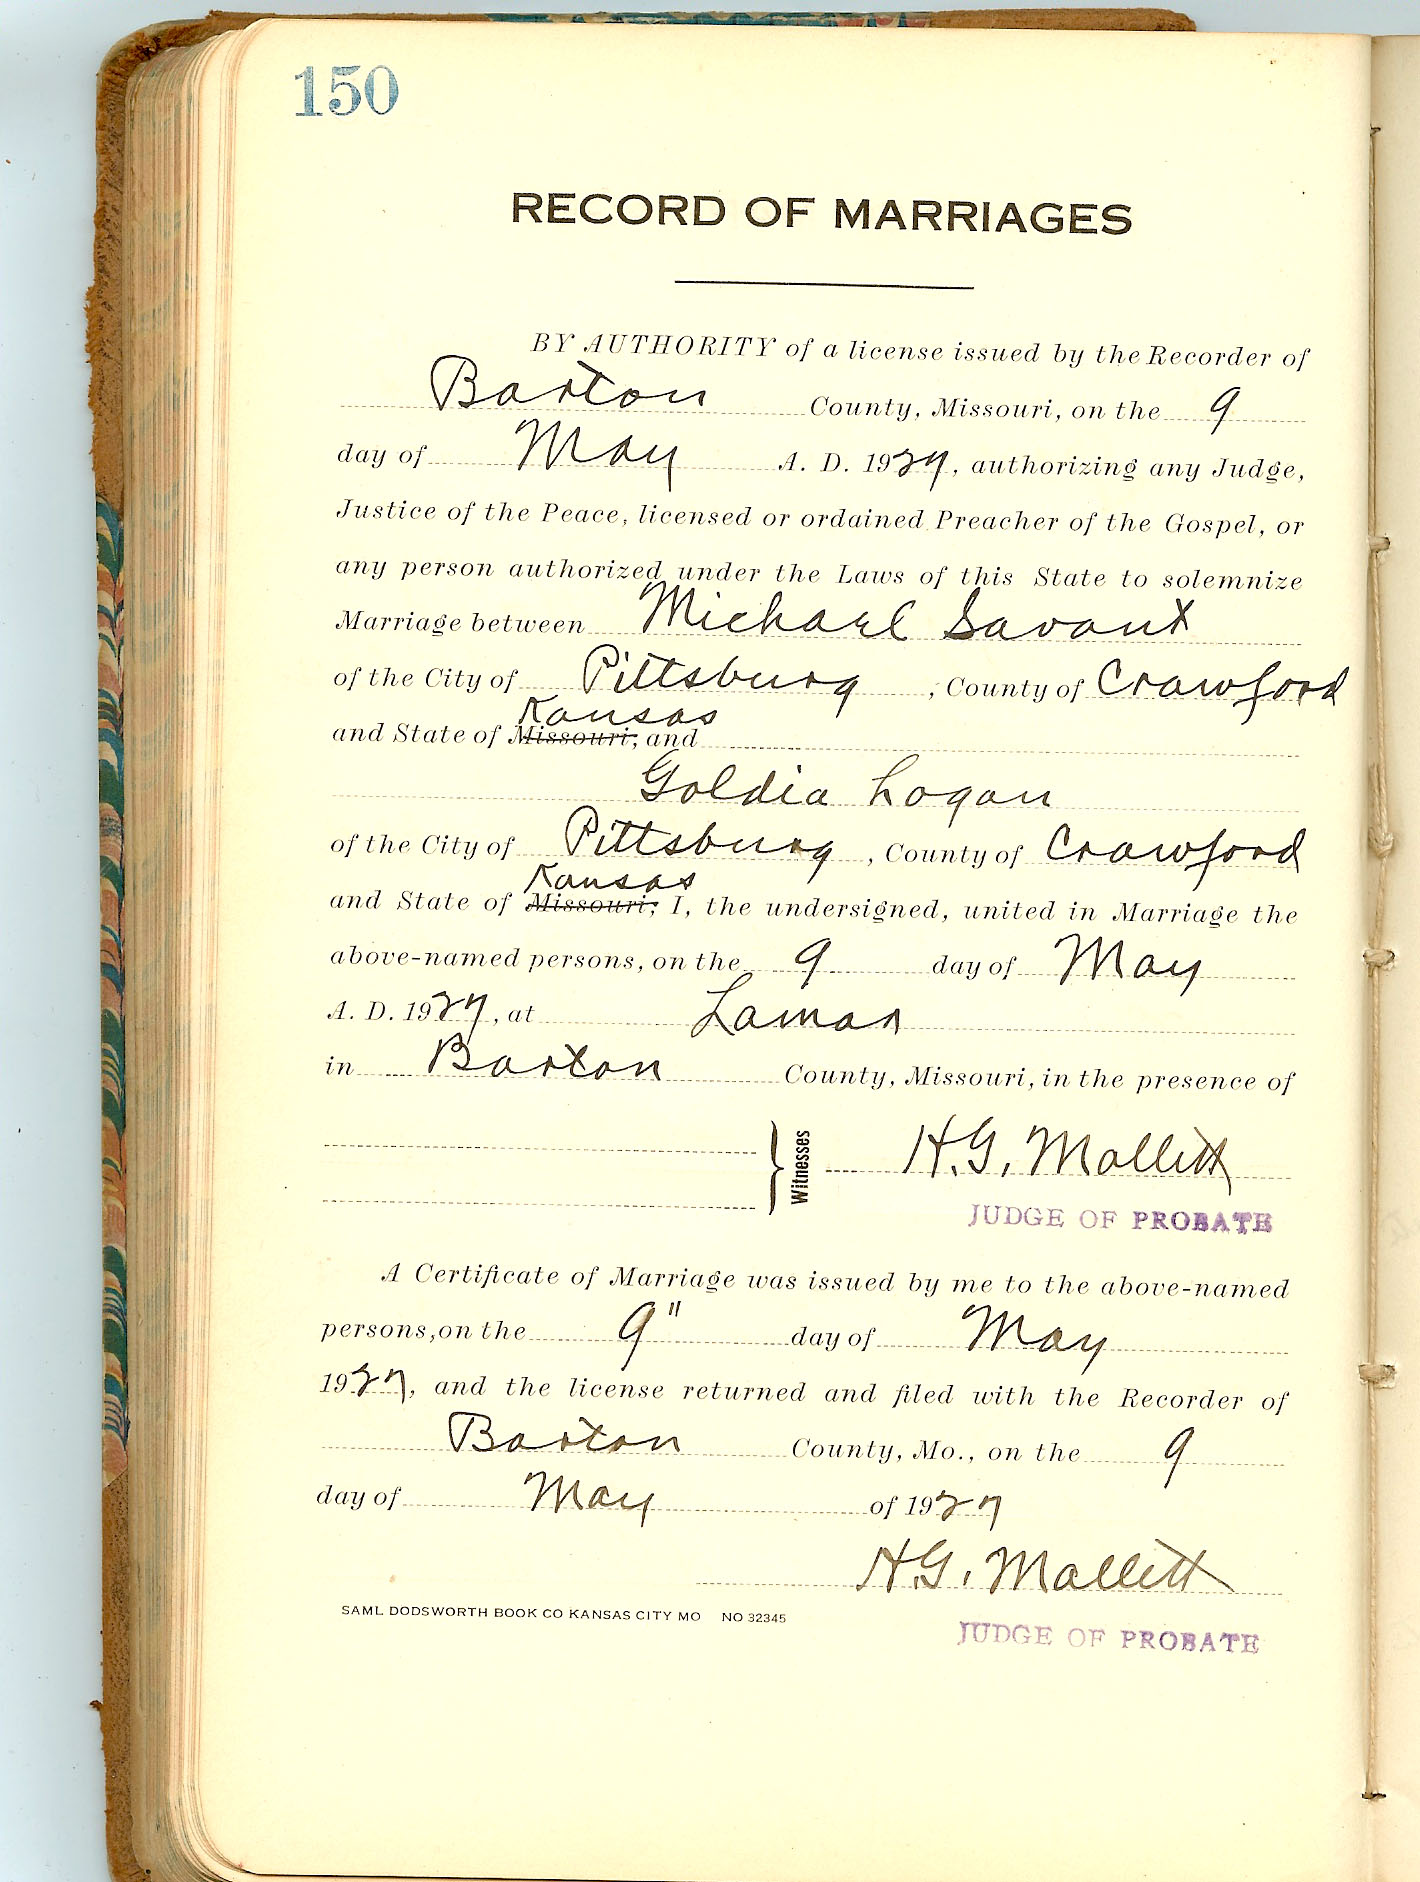 150
RECORD OF MARRIAGES
BY AUTHORITY of a license issued by the Recorder of
Barton County, Missouri, on the 9
day of May A. D. 1927, authorizing any Judge,
Justice of the Peace, licensed or ordained Preacher of the Gospel, or
any person authorized under the Laws of this State to solemnize
Marriage between Michael Savant
of the City of Pittsburg, County of Crawford
Kansas
and State of Missouri, and
Goldia Logan
of the City of Pittsburg, County of Crawford
Kansas
and State of Missouri; I, the undersigned, united in Marriage the
above-named persons, on the 9 day of May
A. D. 1927, at Lamar
in Barton County, Missouri, in the presence of
Witnesses H. G. Mallett
JUDGE OF PROBATE
A Certificate of Marriage was issued by me to the above-named
persons, on the 9" day of May
1927, and the license returned and filed with the Recorder of
Barton County, Mo., on the 9
day of May of 1927
H. G. Mallett
SAML DODSWORTH BOOK CO KANSAS CITY MO NO 32345
JUDGE OF PROBATE